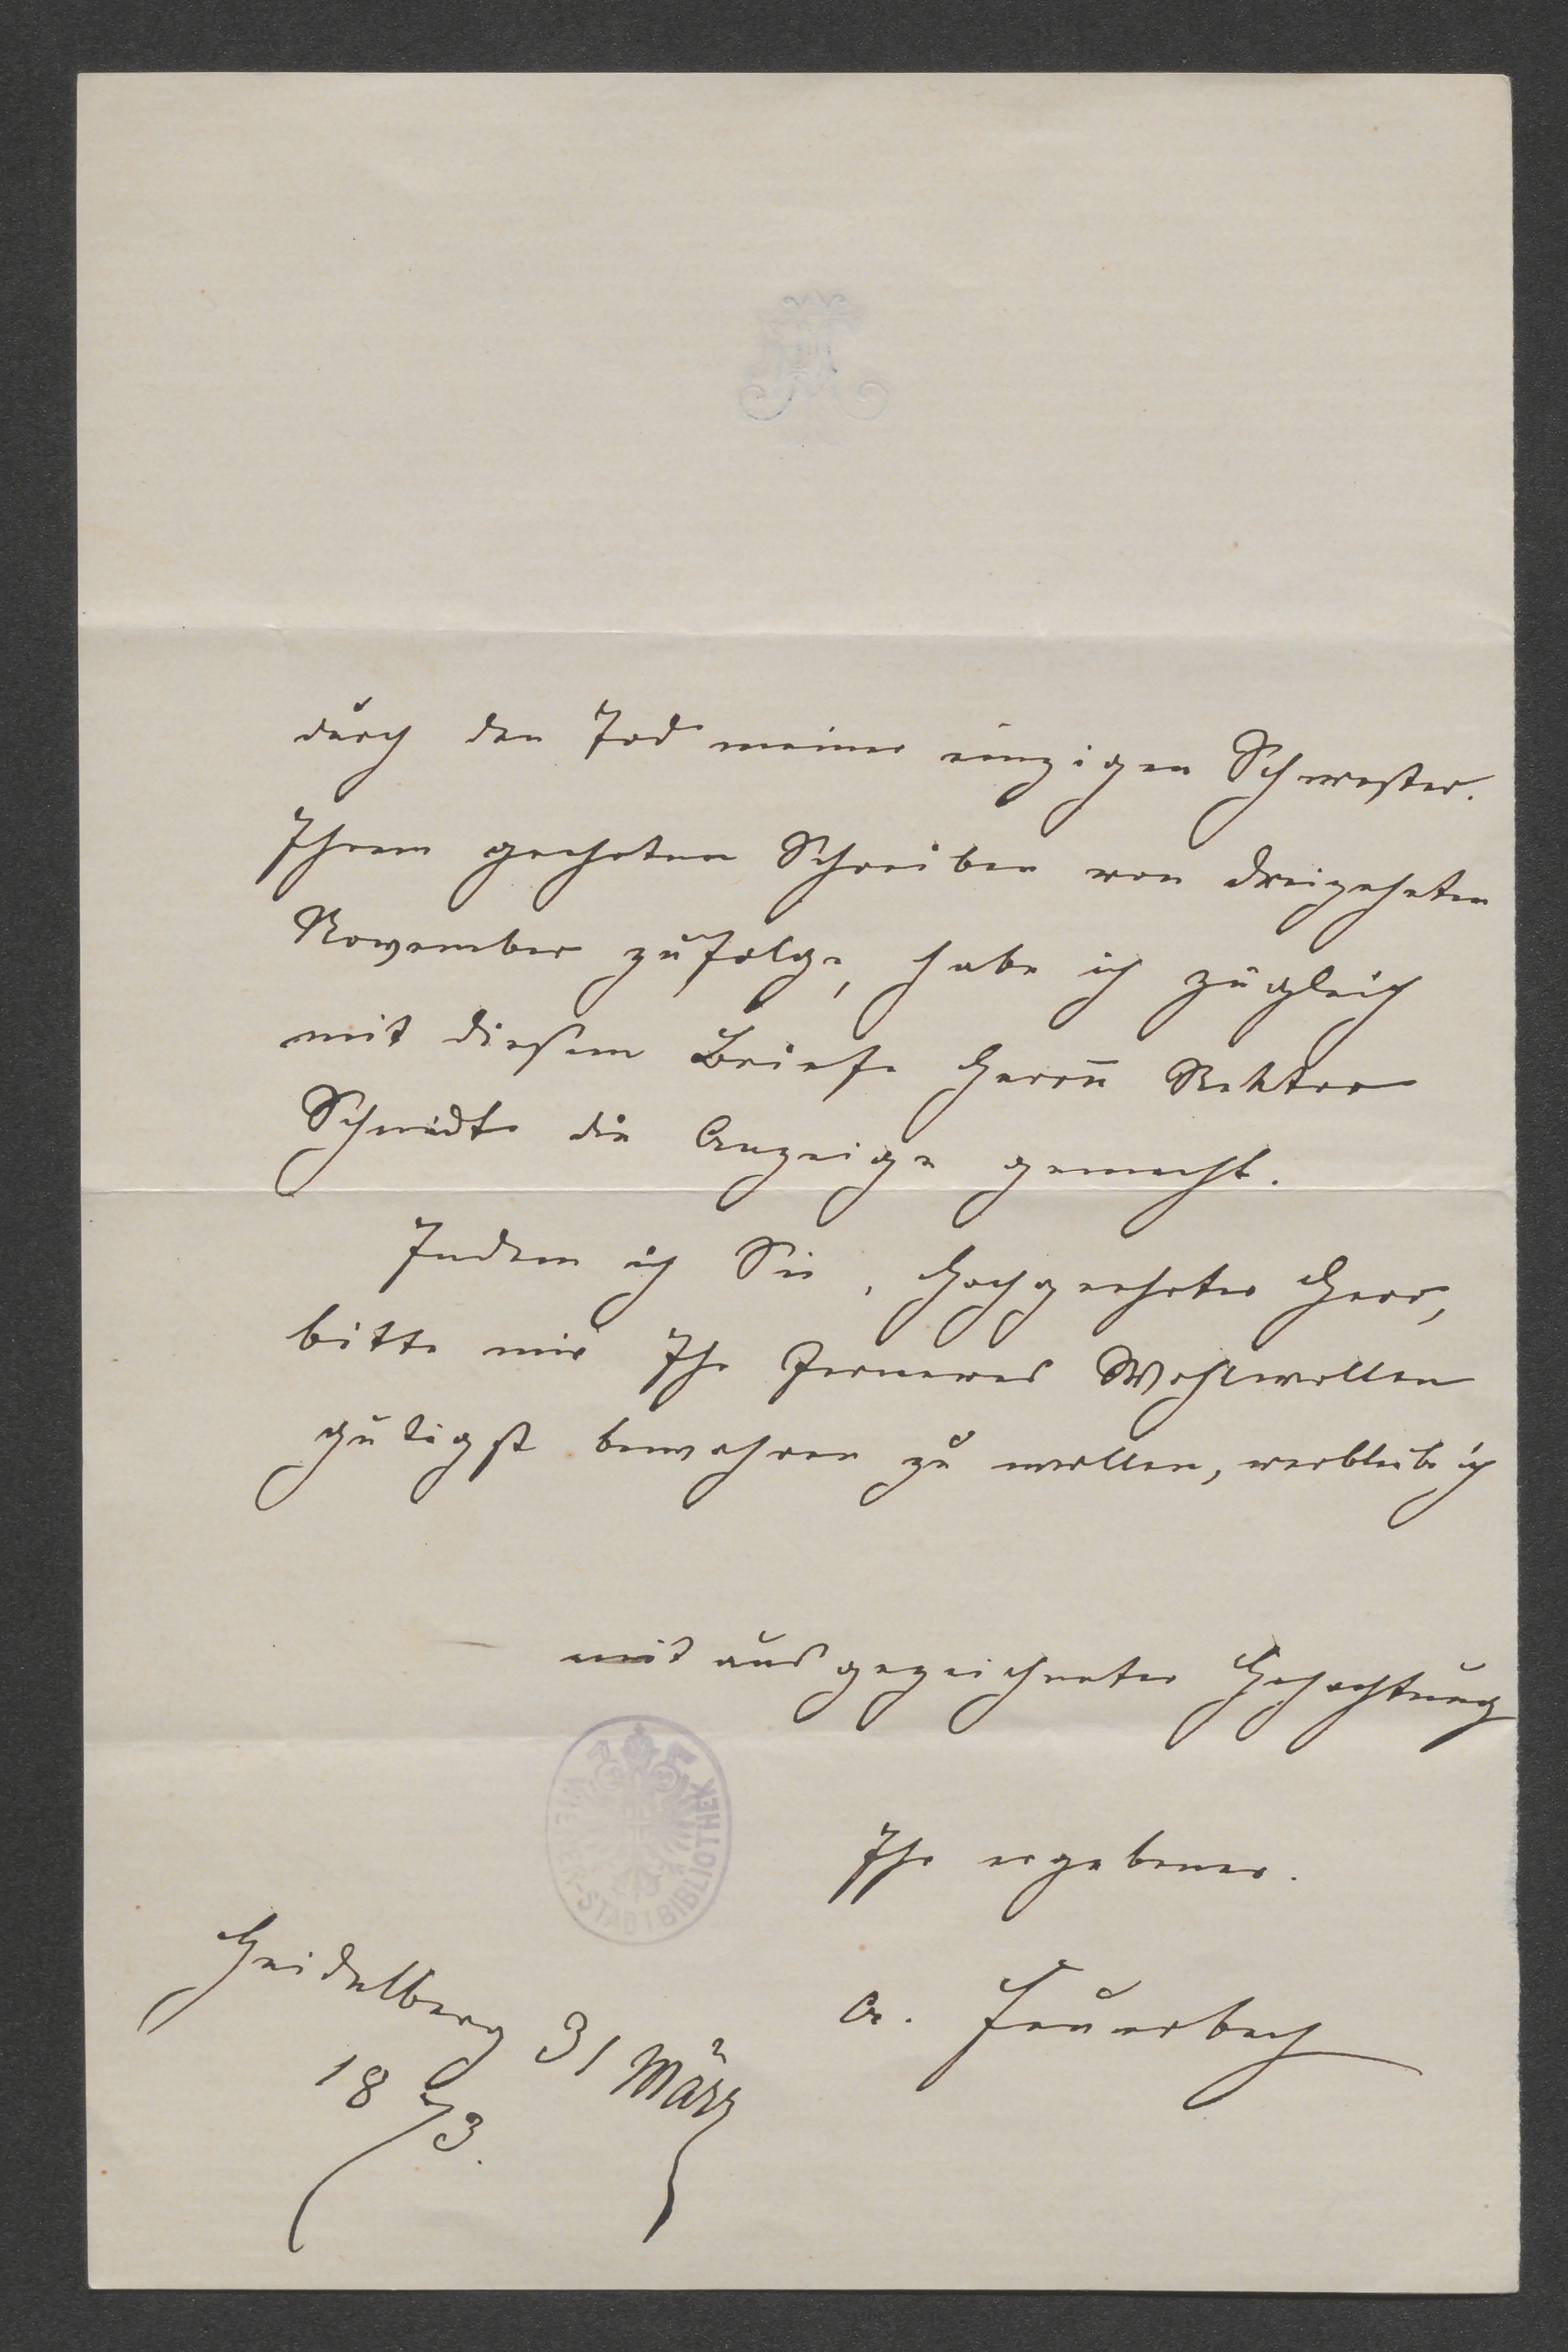 durch den Tod meiner einzigen Schwester.
Ihrem geehrten Schreiben von dreizehnten
November zufolge, habe ich zugleich
mit diesem Briefe Herrn̄ Rektor
Schmidt die Anzeige gemacht.
Indem ich Sie, Hochgeehrter Herr,
bitte mir Ihr ferneres Wohlwollen
gütigst bewahren zu wollen, verbleibe ich
mit ausgezeichneter Hochachtung
Ihr ergebener.
A. Feuerbach
Heidelberg 31 März
1873.
WIENER-STADTBIBLIOTHEK